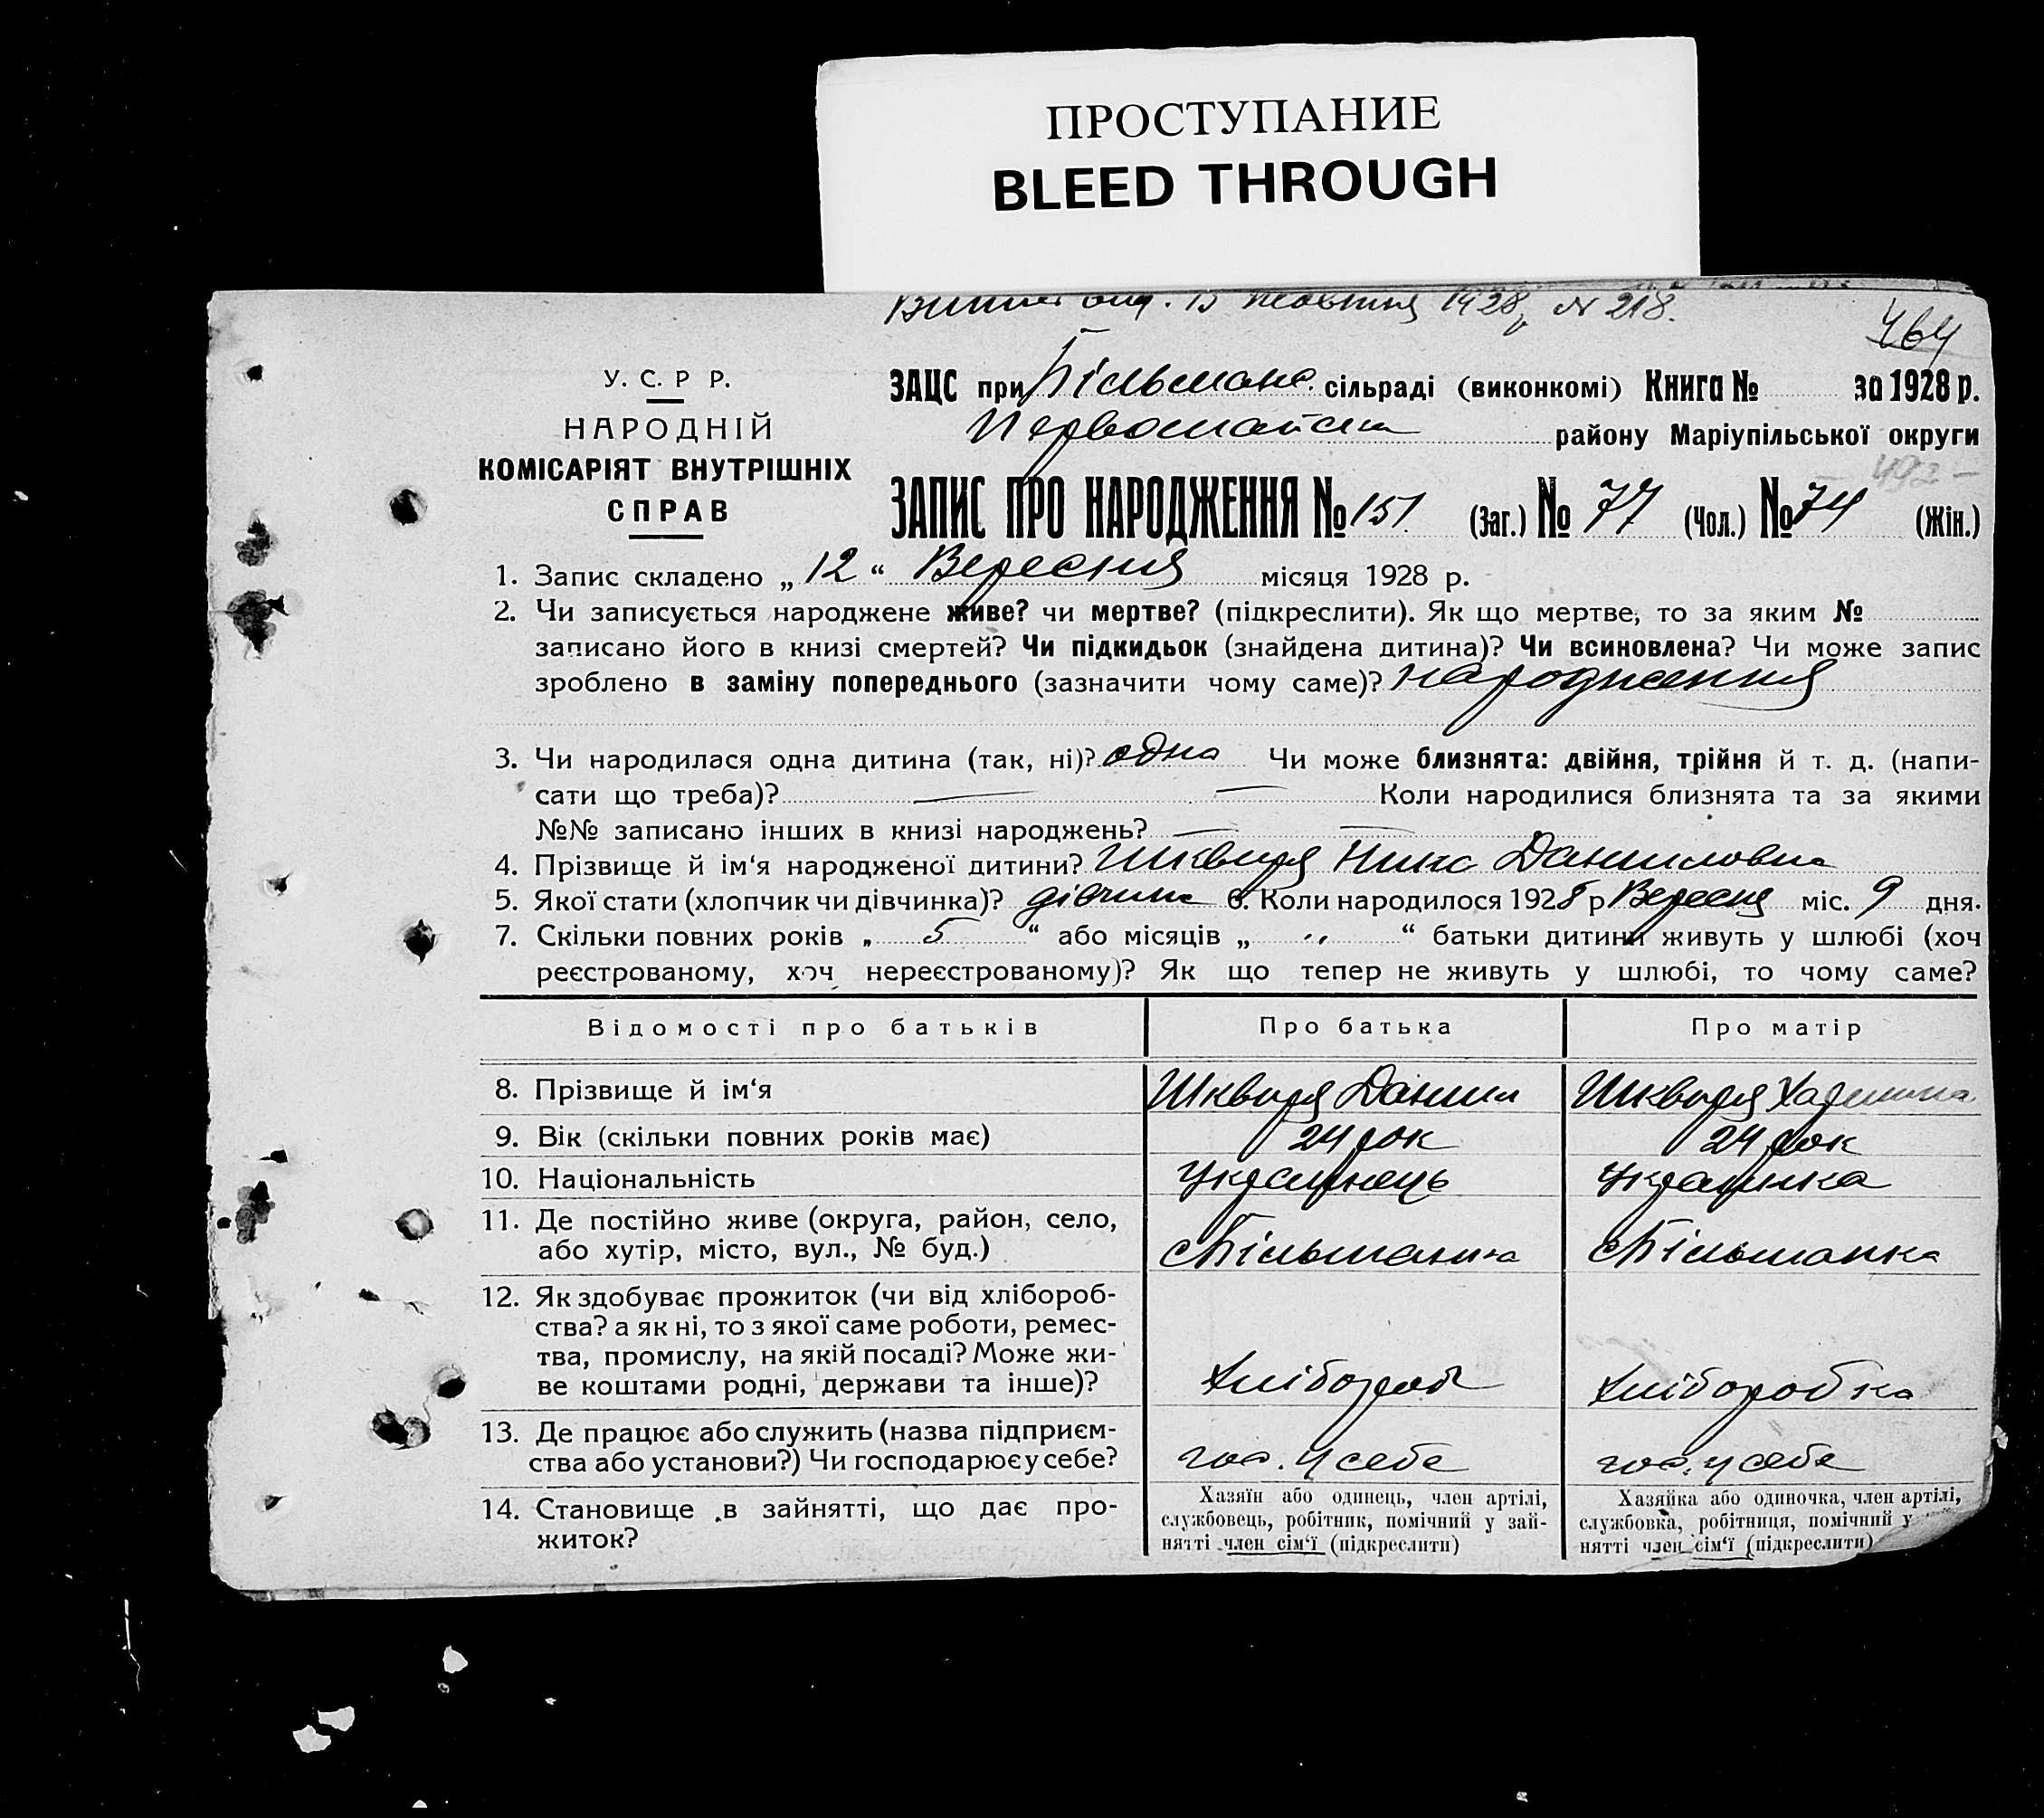 ПРОСТУПАНИЕ
BLEED THROUGH
15 жовтня 1928 р № 218.
464
У. С. Р Р.
НАРОДНІЙ
КОМІСАРІЯТ ВНУТРІШНІХ
СПРАВ
ЗАЦС при Більманс. сільраді (виконкомі) Книга № за 1928 р.
Первомайськ району Маріупільської округи
492
ЗАПИС ПРО НАРОДЖЕННЯ № 151 (Заг.) № 77 (Чол.) № 74 (Жін.)
1. Запис складено „ 12 “ Вересня місяця 1928 р.
2. Чи записується народжене живе? чи мертве? (підкреслити). Як що мертве, то за яким №
записано його в книзі смертей? Чи підкидьок (знайдена дитина)? Чи всиновлена? Чи може запис
зроблено в заміну попереднього (зазначити чому саме)? народження
3. Чи народилася одна дитина (так, ні)? одна Чи може близнята: двійня, трійня й т. д. (напи-
сати що треба)? — — Коли народилися близнята та за якими
№№ записано інших в книзі народжень? — —
4. Прізвище й ім‘я народженої дитини? Шквиря Нина Даниловна
5. Якої стати (хлопчик чи дівчинка)? дівчина 6. Коли народилося 1928 р Вересня міс. 9 дня.
7. Скільки повних років „ 5 “ або місяців „ “ батьки дитини живуть у шлюбі (хоч
реєстрованому, хоч нереєстрованому)? Як що тепер не живуть у шлюбі, то чому саме?
Відомості про батьків Про батька Про матір
8. Прізвище й ім‘я Шквиря Данил Шквиря
9. Вік (скільки повних років має) 24 рок 24 рок
10. Національність Українець Українка
11. Де постійно живе (округа, район, село,
або хутір, місто, вул., № буд.) с Більманка с Більманка
12. Як здобуває прожиток (чи від хліборoб-
ства? а як ні, то з якої саме роботи, ремес-
тва, промислу, на якій посаді? Може жи-
ве коштами родні, держави та інше)? Хлібороб Хліборобка
13. Де працює або служить (назва підприєм-
ства або установи?) Чи господарює у себе? гос. у себе гос. у себе
14. Становище в зайнятті, що дає про-
житок?
Хазяїн або одинець, член артілі,
службовець, робітник, помічний у зай-
нятті член сім‘ї (підкреслити)
Хазяйка або одиночка, член артілі,
службовка, робітниця, помічний у
нятті член сім‘ї (підкреслити)